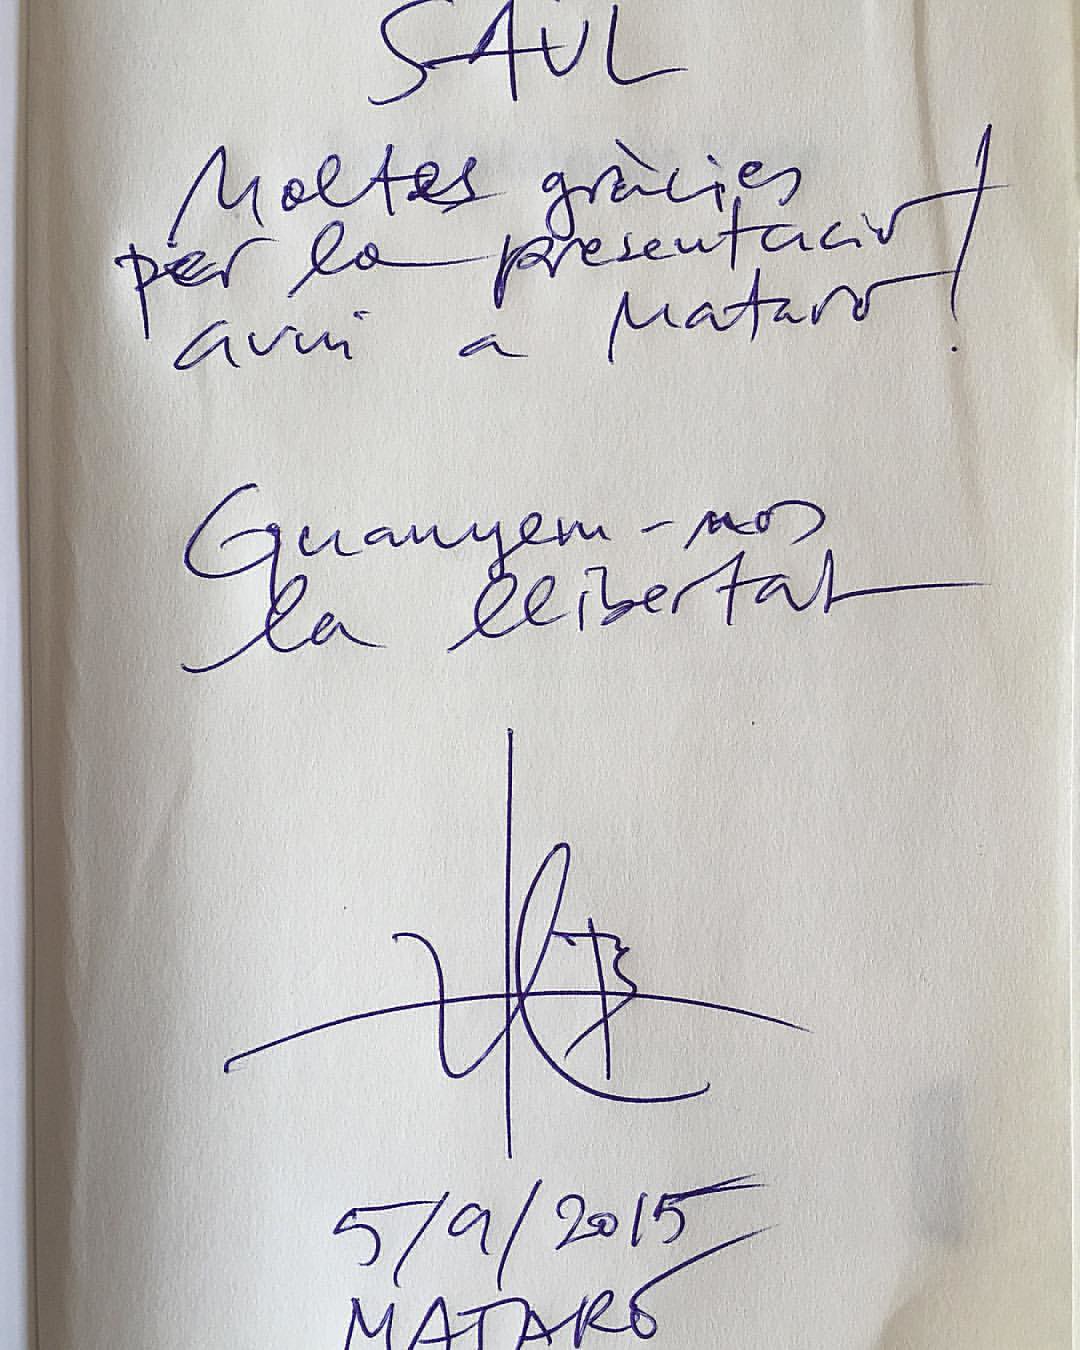 SAÜL
Moltes gràcies
per la presentació
avui a Mataró!
Guanyem-nos
la llibertat
5/9/2015
MATARÓ